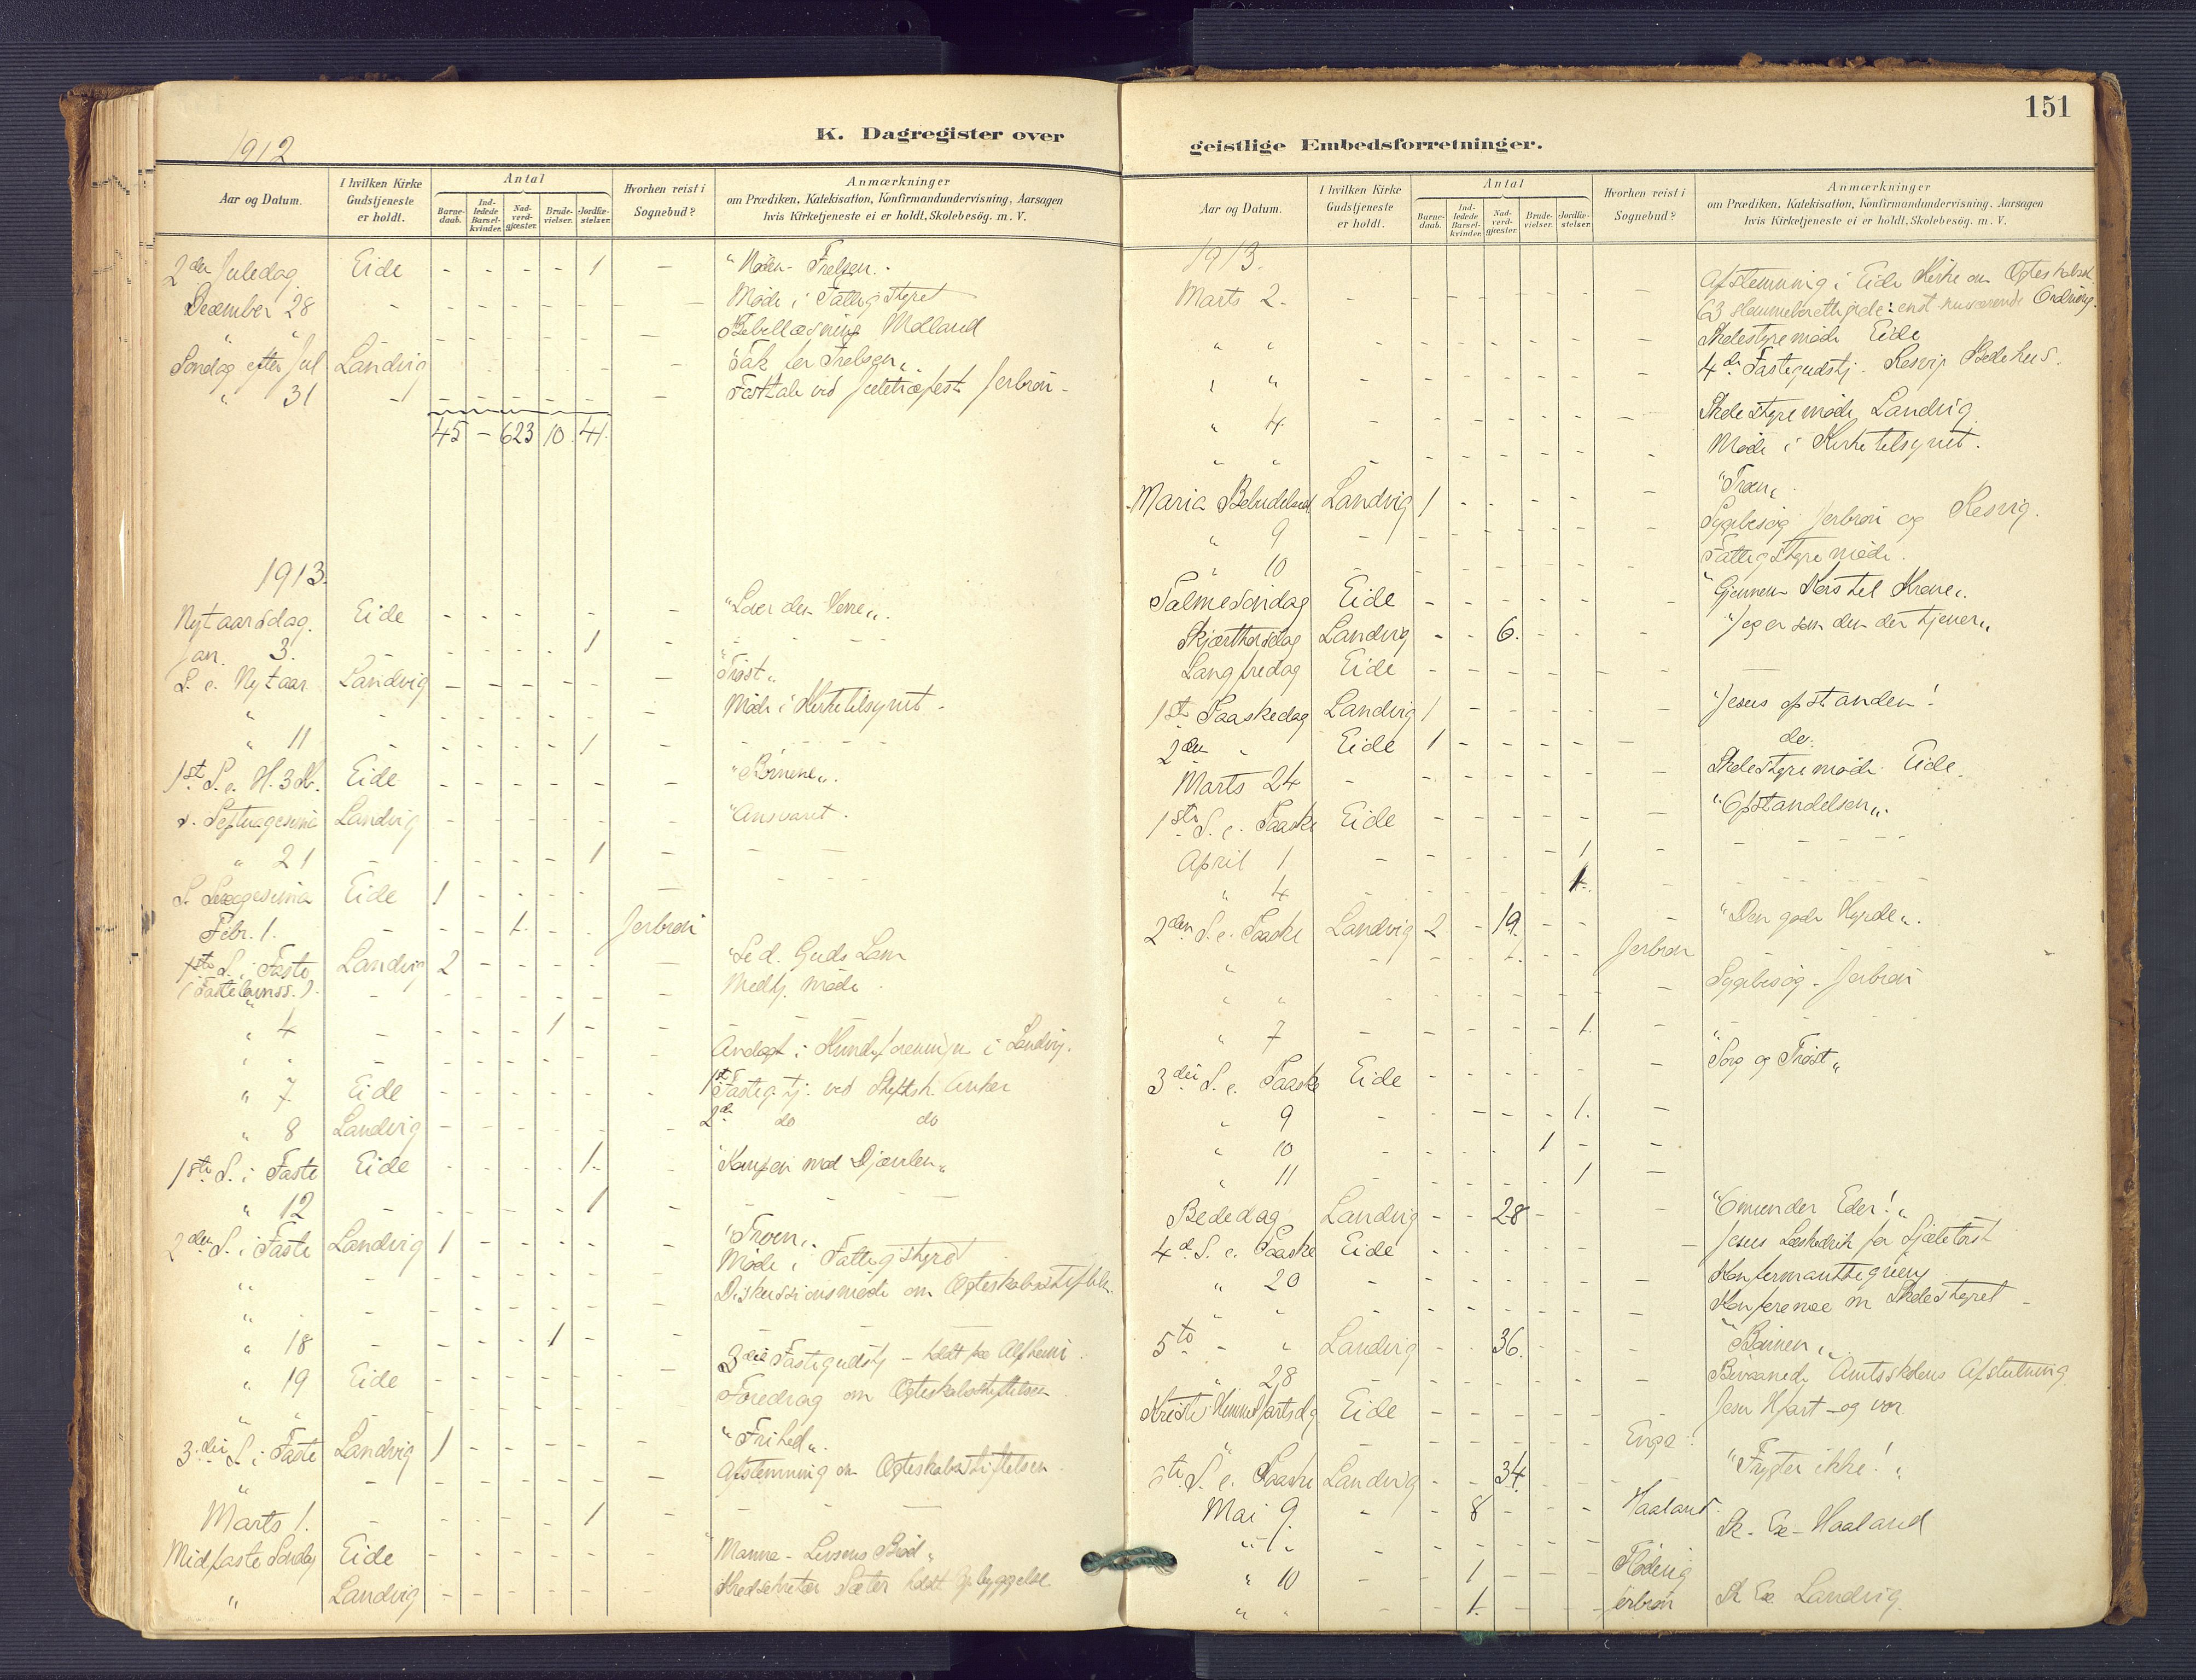 151
K. Dagregister over
1912
Aar og Datum.
I hvilken Kirke Gudstjeneste er holdt.
Antal
Barne-daab.
Ind-ledede Barsel-kvinder.
Nad-verd-gjæster.
Brude-vielser.
Jordfæ-stelser.
Hvorhen reist i Sognebud?
Anmærkninger
om Prædiken, Katekisation, Konfirmandundervisning, Aarsagen
hvis Kirketjeneste ei er holdt, Skolebesøg. m. V.
2den Juledag. Eide - - - - 1 - "Nøden - Frelsen".
December 28 - - - - - - - Møde i Fattigstyret
" " - - - - - - Bibellæsning Molland
Søndag efter Jul Landvig - - - - - - "Tak for Frelsen"
" 31 - - - - - - - Festtale ved Juletræfest Jerbron -
45 - 623 10. 41.
1913.
Nytaarsdag. Eide - - - - - - "Lover den Herre".
Jan. 3. - - - - 1 -
S. e. Nytaar Landvig - - - - - - "Trøst"
" - - - - - - - Møde i Kirketilsynet -
" 11 - - - - - 1 -
1st S. e. H. 3 K. Eide - - - - - - "Børnene".
S. Septuagesima Landvig - - - - - - "Ansvaret.
" 21 - - - - - 1 -
S. Sexagesima Eide 1 - - - - -
Febr. 1. - - - 1. - - Jerbron
1ste S. i Faste Landvig 2 - - - - - "Se d. Guds Lam
(Fastelavnss.). - - - - - - - Medhj. møde.
" 4 - - - - 1 - -
" " - - - - - - Andagt i Kvindeforeningen i Landvig.
" 7. Eide - - - - - - 1st Fasteg.tj. ved Stiftsk. Anker
" 8 Landvig - - - - - - 2d do do
1ste S. i Faste Eide - - - - 1. - "Kampen mod Djævlen"
" 12 - - - - - 1 -
2den S. i Faste Landvig 1 - - - - - "Troen".
" - - - - - - - Møde i Fattigstyret
" - - - - - - - Diskussionsmøde om Ægteskabsstiftels.
" 18 - - - - 1 - -
" 19 Eide - - - - - - 3die Fastegudstj - holdt paa Alfheim.
" " - - - - - - Foredrag om Ægteskabsstiftelsen
3die S. i Faste Landvig 1 - - - - - "Frihed".
" - - - - - - - Afstemning om Ægteskabsstiftelsen
Marts 1. - - - - - 1 -
Midfaste Søndag Eide - - - - - - "Manna - Livsens Brød"
" Landvig - - - - - - Kredssekretær Sæter holdt Opbyggelse
geistlige Embedsforretninger.
Aar og Datum.
I hvilken Kirke Gudstjeneste er holdt.
Antal
Barne-daab.
Ind-ledede Barsel-kvinder.
Nad-verd-gjæster.
Brude-vielser.
Jordfæ-stelser.
Hvorhen reist i Sognebud?
Anmærkninger
om Prædiken, Katekisation, Konfirmandundervisning, Aarsagen
hvis Kirketjeneste ei er holdt, Skolebesøg. m. V.
1913.
Marts 2. - - - - - - - Afstemning i Eide Kirke om Ægteskabsst.
63 stemmeberettigede: enst. nuværende Ordning.
" " - - - - - - - Skolestyremøde Eide
" " - - - - - - - 4de Fastegudstj. Resvig Bedehus.
" 4. - - - - - - - Skolestyremøde Landvig.
" " - - - - - - - Møde i Kirketilsynet.
Maria Bebudelsesd. Landvig 1 - - - - - "Troen"
" 9 - - - - - - - Sygebesøg Jerbron og Resvig.
" 10 - - - - - - - Fattigstyremøde.
Palmesøndag Eide - - - - - - "Gjennem Kors til Krone".
Skjærthorsdag Landvig - - 6. - - - "Jeg er som den der tjener"
Langfredag Eide - - - - - -
1ste Paaskedag Landvig 1 - - - - - "Jesus opstanden!
2den " Eide 1 - - - - - do.
Marts 24 - - - - - - - Skolestyremøde Eide.
1ste S. e. Paaske Eide - - - - - - "Opstandelsen".
April 1 - - - - - 1 -
" 4 - - - - - 1. -
2den S. e. Paaske Landvig 2. - 19. - - - "Den gode Hyrde".
" - - - 1. - - Jerbron
" " - - - - - - - Sygebesøg - Jerbron
" 7 - - - - - 1. -
3die S. e. Paaske Eide - - - - - - "Sorg og Trøst"
" 9 - - - - - 1. -
" 10 - - - - 1 - -
" 11 - - - - 1 -
Bededag Landvig - - 28 - - - "Omvender Eder!"
4de S. e. Paaske Eide - - - - - - Jesus Læskedrik for Sjæletørst
" 20 - - - - - - - Konfirmanttegning
" " - - - - - - - Konference m Skolestyret -
5te - " Landvig - - 36. - - - "Bønnen".
" 28 - - - - - - Bivaanede Amtsskolens Afslutning.
Kristi Himmelfartsdg Eide - - - - - - Jesu Hfart - og vor
" - - - - - Enge.
6te S. e. Paaske Landvig - - 34. - - - "Frygter ikke!"
Mai 9. - - 8 - - - Haaland. Sk. Ex - Haaland
" " - - - - - -
" 10 - - 1 - - - Flødevig
" " - - 1. - - - Jerbron Sk Ex Landvig.